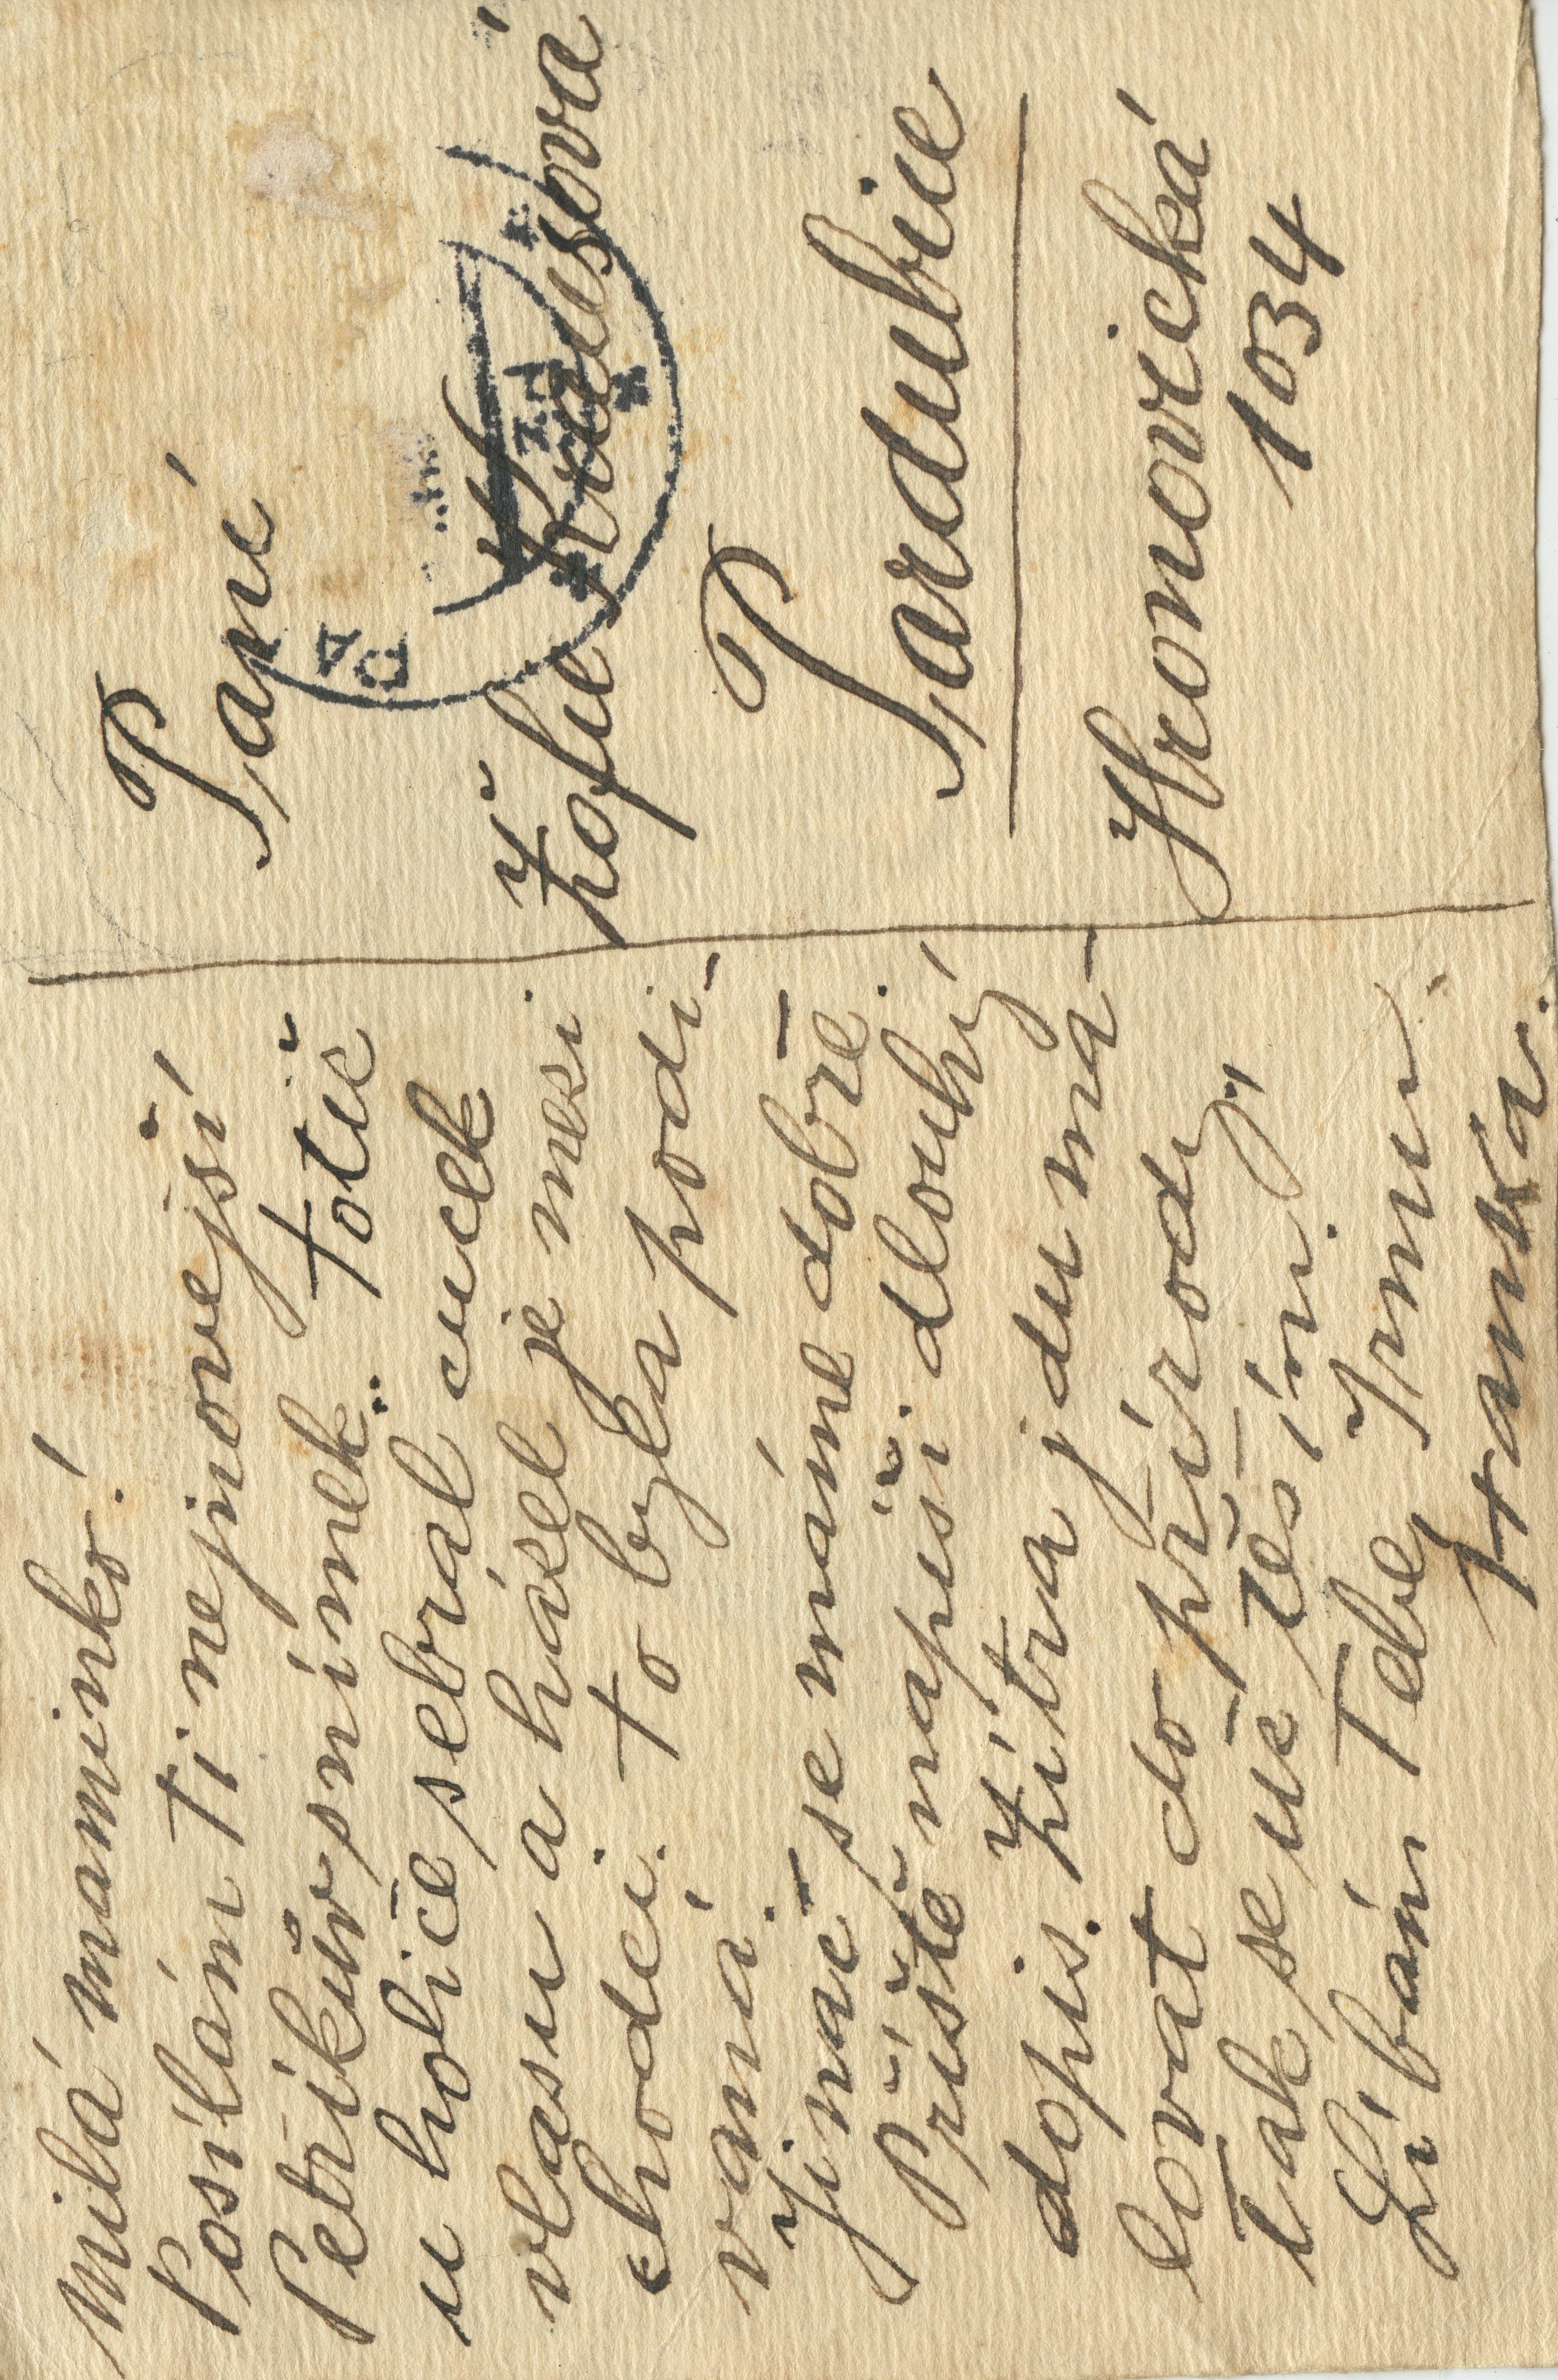 Milá maminko!
Posílám Ti nejnovejší
Petříkův snímek. Totiž
u holiče sebral cucek
vlasu a házel je mesi
chodci. To byla podí-
vaná.
Jinač se máme dobře.
Příště napíši dlouhý
dopis. Zítra jdu ma-
lovat do přírody,
tak se už těším.
Líbám Tebe, Irmu.
Hanka.
Paní
Žofie Krausová
Pardubice
Hronovická
1034
PA